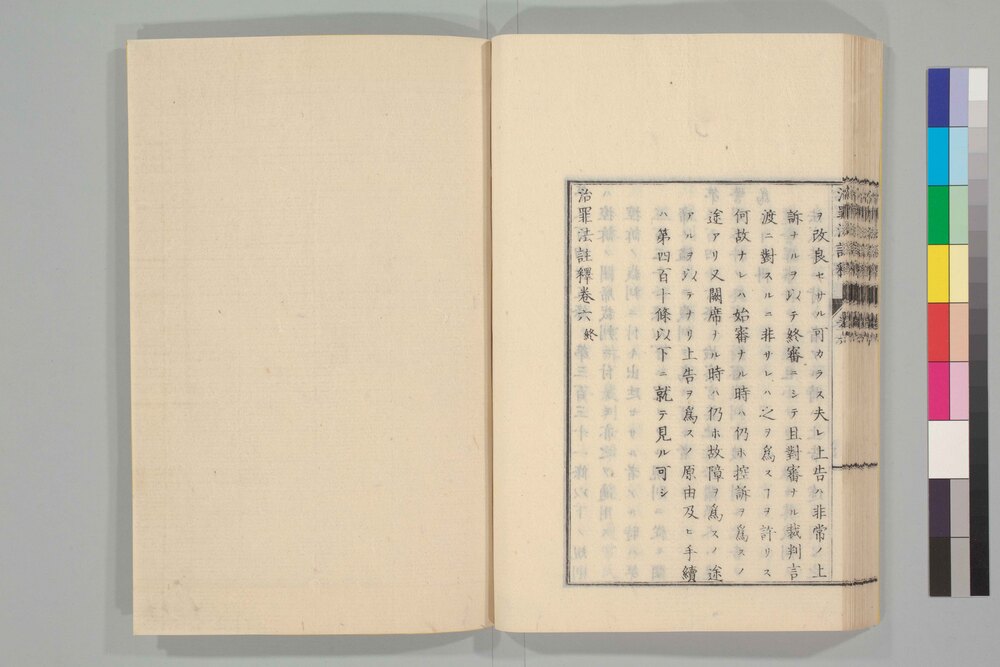 ヲ改良セサル可カラス夫レ上告ハ非常ノ上
訴ナルヲ以テ終審ニシテ且對審ナル裁判言
渡ニ對スルニ非サレハ之ヲ爲スヿヲ許リス
何故ナレハ始審ナル時ハ仍ホ控訴ヲ爲スノ
途アリ又闕席ナル時ハ仍ホ故障ヲ爲スノ途
アルヲ以テナリ上告ヲ爲スノ原由及ヒ手續
ハ第四百十條以下ニ就テ見ル可シ
治罪法註釋卷六 終
治罪法註釋